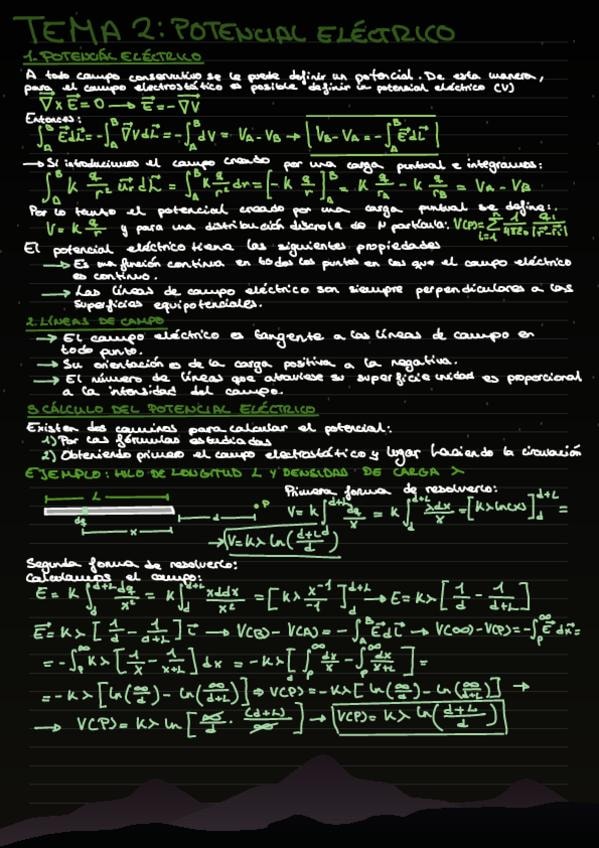 TEMA 2: POTENCIAL ELÉCTRICO
1. POTENCIAL ELÉCTRICO
A todo campo conservativo se le puede definir un potencial. De esta manera,
para el campo electrostático es posible definir el potencial eléctrico (V)
∇ x E = 0 → E = -∇V
Entonces:
∫_A^B E dL = -∫_A^B ∇V dL = -∫_A^B dV = VA - VB → VB - VA = -∫_A^B E dL
→ Si introducimos el campo creado por una carga puntual e integramos:
∫_A^B K q/r² ur dL = ∫_A^B K q/r² dr = [-K q/r]_A^B = K q/rA - K q/rB = VA - VB
Por lo tanto el potencial creado por una carga puntual se define:
V = K q/r y para una distribución discreta de N partícula: V(P) = Σ_{i=1}^n 1/4πε₀ qi/|r-ri|
El potencial eléctrico tiene las siguientes propiedades
→ Es una función continua en todos los puntos en los que el campo eléctrico
es continuo.
→ Las líneas de campo eléctrico son siempre perpendiculares a las
superficies equipotenciales.
2. LÍNEAS DE CAMPO
→ El campo eléctrico es tangente a las líneas de campo en
todo punto.
→ Su orientación es de la carga positiva a la negativa.
→ El número de líneas que atraviese su superficie unidad es proporcional
a la intensidad del campo.
3 CÁLCULO DEL POTENCIAL ELÉCTRICO
Existen dos caminos para calcular el potencial:
1) Por las fórmulas estudiadas
2) Obteniendo primero el campo electrostático y luego haciendo la circulación
EJEMPLO: HILO DE LONGITUD L Y DENSIDAD DE CARGA λ
Primera forma de resolverlo:
L
dq
x
d
P
V = K ∫_d^{d+L} dq/x = K ∫_d^{d+L} λdx/x = [Kλ ln(x)]_d^{d+L} =
→ V = Kλ ln(d+L/d)
Segunda forma de resolverlo:
Calculamos el campo:
E = K ∫_d^{d+L} dq/x² = K ∫_d^{d+L} λdx/x² = [Kλ x⁻¹/-1]_d^{d+L} → E = Kλ [1/d - 1/d+L]
E = Kλ [1/d - 1/d+L] i → V(B) - V(A) = -∫_A^B E dL → V(∞) - V(P) = -∫_P^∞ E dx =
= -∫_P^∞ Kλ [1/x - 1/x+L] dx = -Kλ [∫_P^∞ dx/x - ∫_P^∞ dx/x+L] =
= -Kλ [ln(∞/d) - ln(∞/d+L)] ⇒ V(P) = -Kλ [ln(∞/d) - ln(∞/d+L)] →
→ V(P) = Kλ ln [∞/d · (d+L)/∞] → V(P) = Kλ ln(d+L/d)